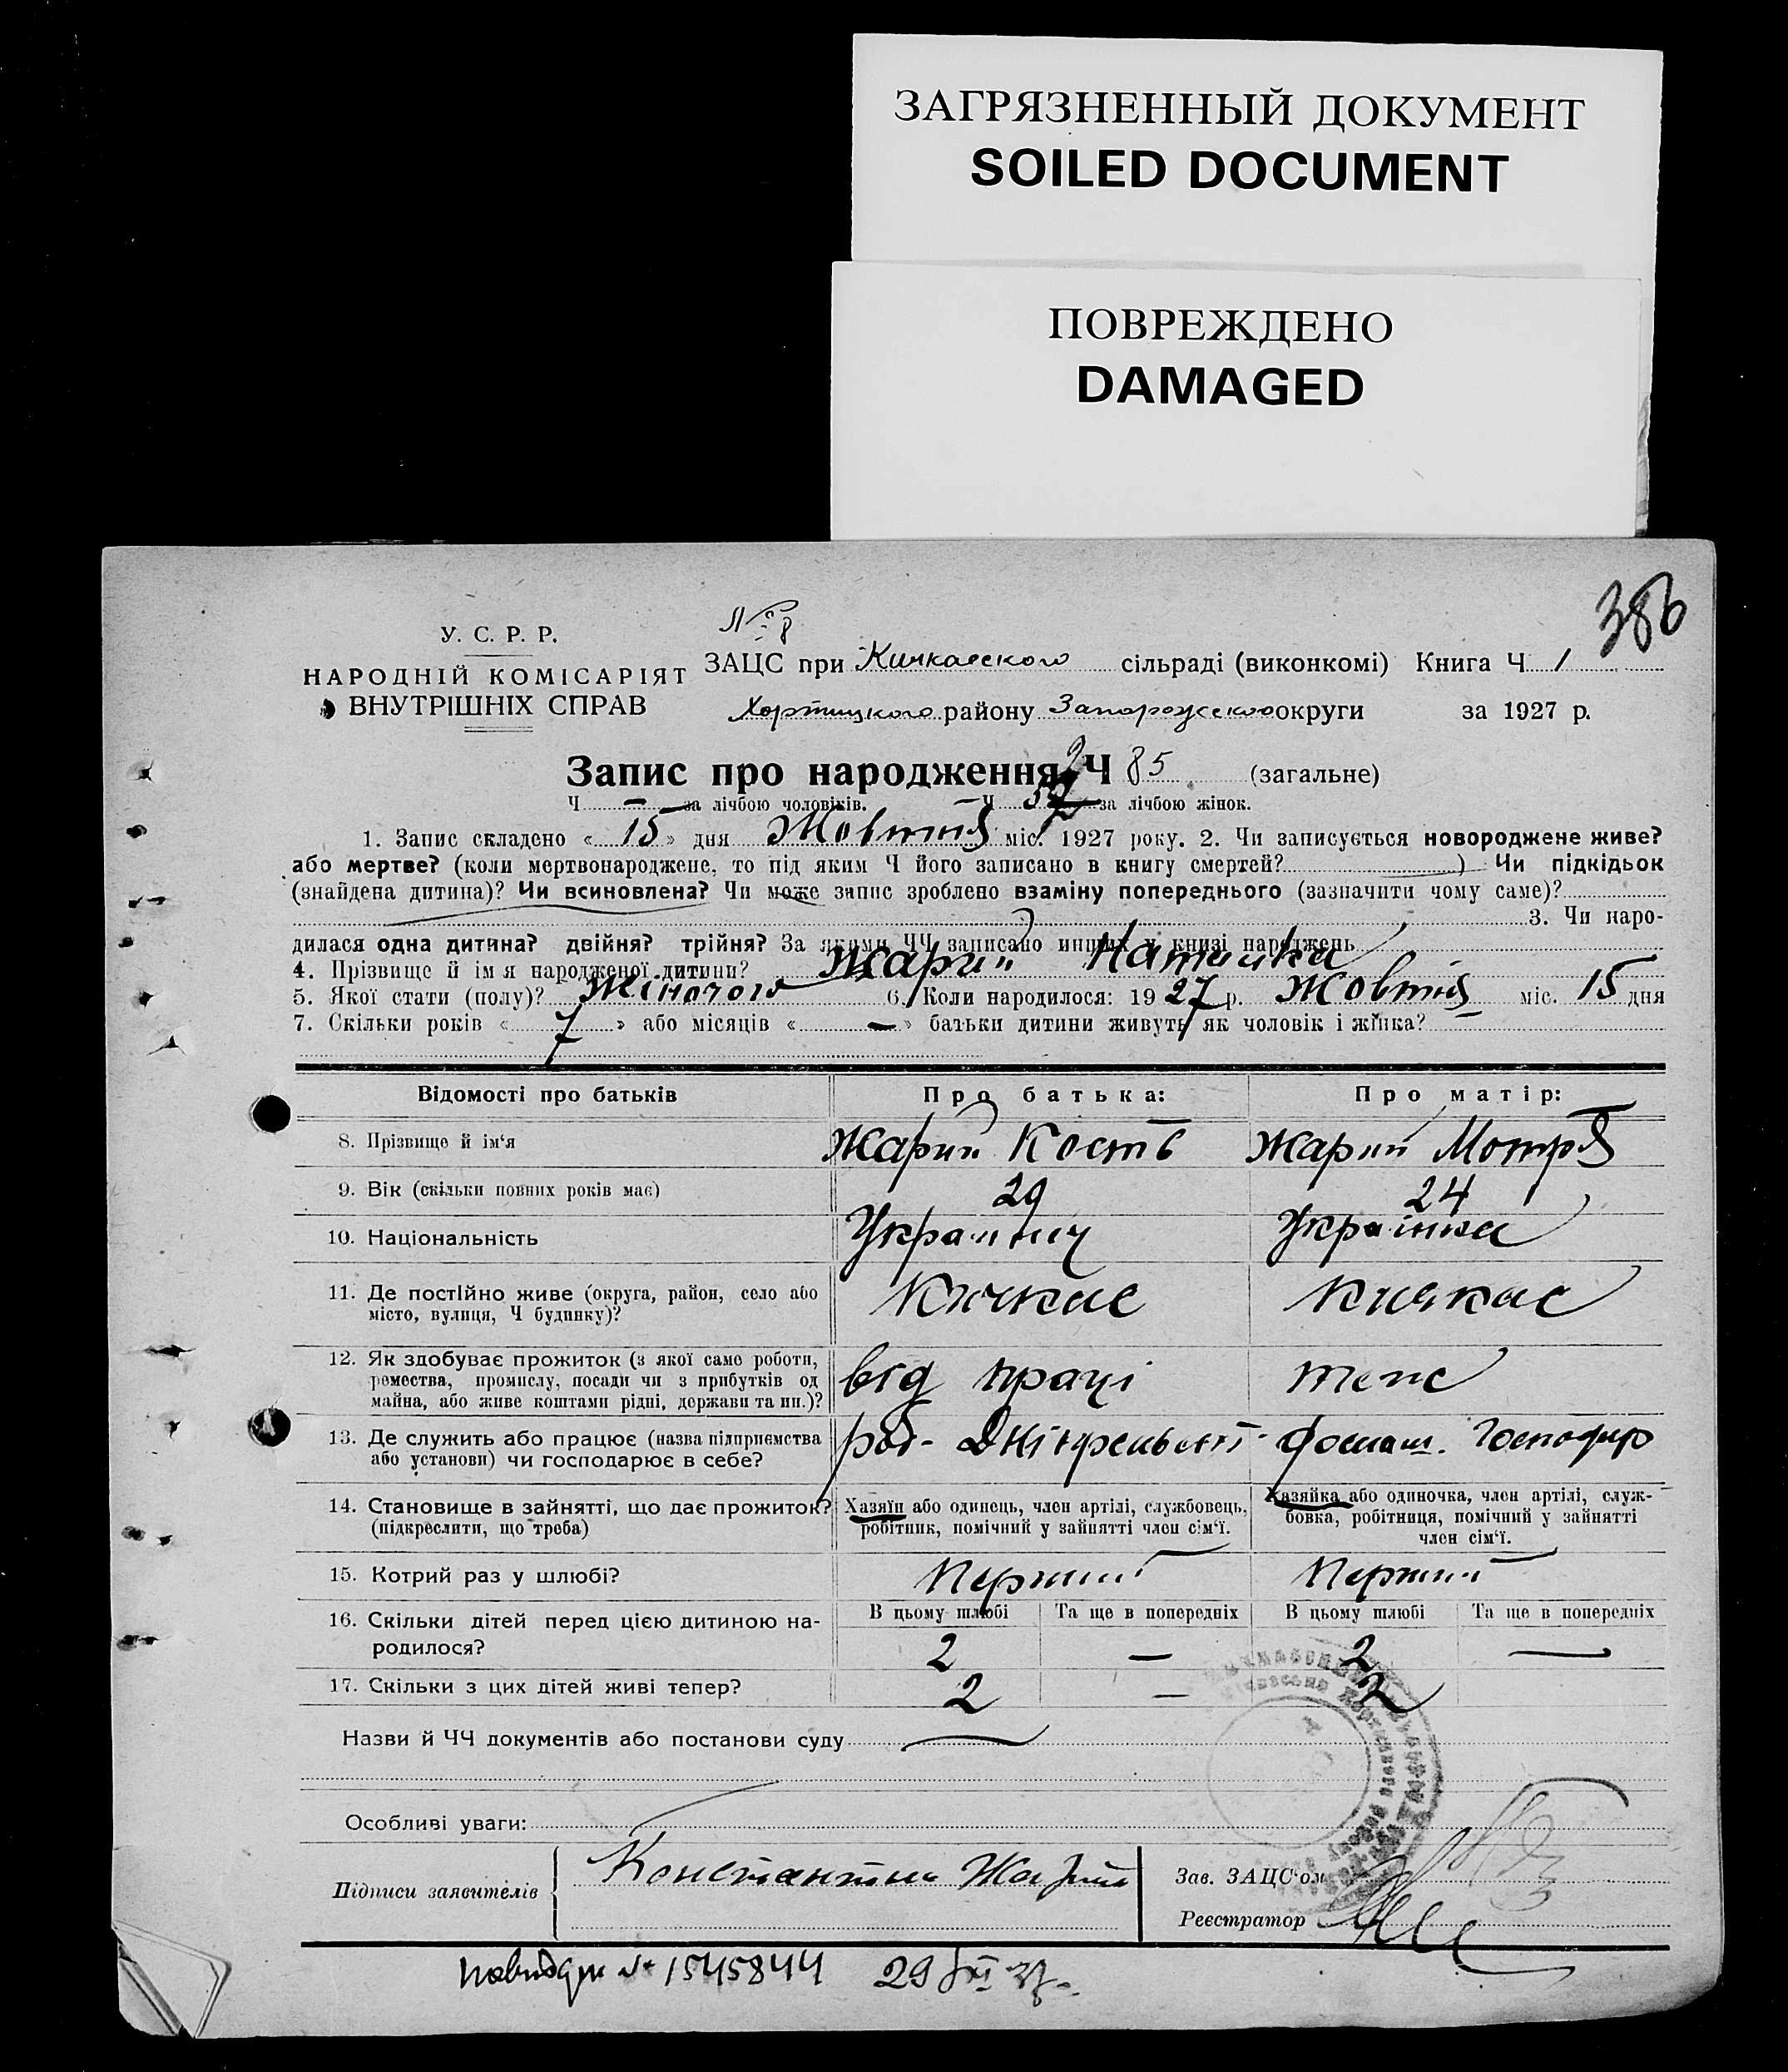 ЗАГРЯЗНЕННЫЙ ДОКУМЕНТ
SOILED DOCUMENT
ПОВРЕЖДЕНО
DAMAGED
386
У. С. Р. Р.
НАРОДНІЙ КОМІСАРІЯТ
ВНУТРІШНІХ СПРАВ
№ 8
ЗАЦС при Кичкаеского сільраді (виконкомі) Книга Ч 1
Хортицкого району Запорожского округи за 1927 р.
Запис про народження Ч 85 (загальне)
Ч — за лічбою чоловіків. — Ч за лічбою жінок.
1. Запис складено « 15 » дня Жовтня міс. 1927 року. 2. Чи записується новороджене живе?
або мертве? (коли мертвонароджене, то під яким Ч його записано в книгу смертей? ) Чи підкідьок
(знайдена дитина)? Чи всиновлена? Чи може запис зроблено взаміну попереднього (зазначити чому саме)?
3. Чи наро-
дилася одна дитина? двійня? трійня? За якими ЧЧ записано инших у книзі народжень
4. Прізвище й ім'я народженої дитини? Жарий Наталка
5. Якої стати (полу)? Жіночого 6. Коли народилося: 1927 р. Жовтня міс. 15 дня
7. Скільки років « 7 » або місяців « — » батьки дитини живуть як чоловік і жінка? —
Відомості про батьків Про батька: Про матір:
8. Прізвище й ім'я Жарий Кость Жарий Мотря
9. Вік (скільки повних років має) 29 24
10. Національність Украинич Украінка
11. Де постійно живе (округа, район, село або
місто, вулиця, Ч будинку)? Кичкас Кичкас
12. Як здобуває прожиток (з якої саме роботи,
ремества, промислу, посади чи з прибутків од
майна, або живе коштами рідні, держави та ин.)? від праці теж
13. Де служить або працює (назва підприємства
або установи) чи господарює в себе? роб- Домаш. Господар
14. Становище в зайнятті, що дає прожиток?
(підкреслити, що треба)
Хазяїн або одинець, член артілі, службовець,
робітник, помічний у зайнятті член сім'ї.
Хазяйка або одиночка, член артілі, служ-
бовка, робітниця, помічний у зайнятті
член сім'ї.
15. Котрий раз у шлюбі? Перший Перший
В цьому шлюбі Та ще в попередніх В цьому шлюбі Та ще в попередніх
16. Скільки дітей перед цією дитиною на-
родилося? 2 — 2 —
17. Скільки з цих дітей живі тепер? 2 — 2
Назви й ЧЧ документів або постанови суду —
Особливі уваги:
Підписи заявителів Константин Жарий
Зав. ЗАЦС'ом
Реєстратор
№ 1545844 29